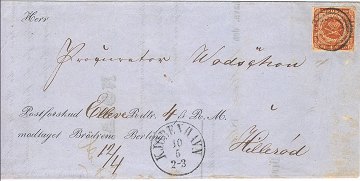 Herr
Procurator Wodschou
Postforskud Elleve Rdlr. 4 ß R. M.
modtaget Brødrene Berlin
12/4
Hillerød
KIØBENHAVN
10
5
2-3